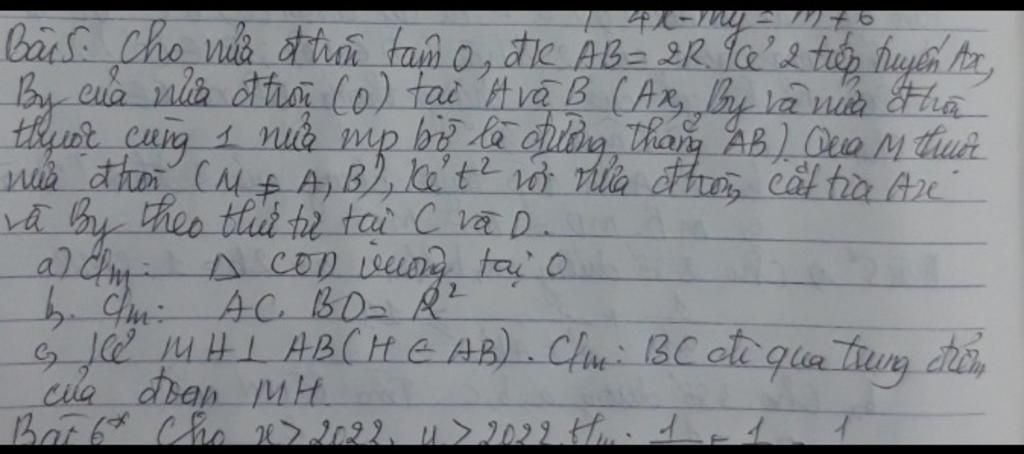 4x - my = m + 6
Bài 5: Cho nửa đtròn tâm O, đk AB = 2R. Kẻ 2 tiếp tuyến Ax,
By của nửa đtròn (O) tại A và B (Ax, By và nửa đtròn
thuộc cùng 1 nửa mp bờ là đường thẳng AB). Qua M thuộc
nửa đtròn (M ≠ A, B), kẻ t² với nửa đtròn, cắt tia Ax
và By theo thứ tự tại C và D.
a) C/m: Δ COD vuông tại O
b. C/m: AC. BD = R²
c, Kẻ MH ⊥ AB (H ∈ AB). C/m: BC đi qua trung điểm
của đoạn MH.
Bài 6* Cho x > 2022, y > 2022